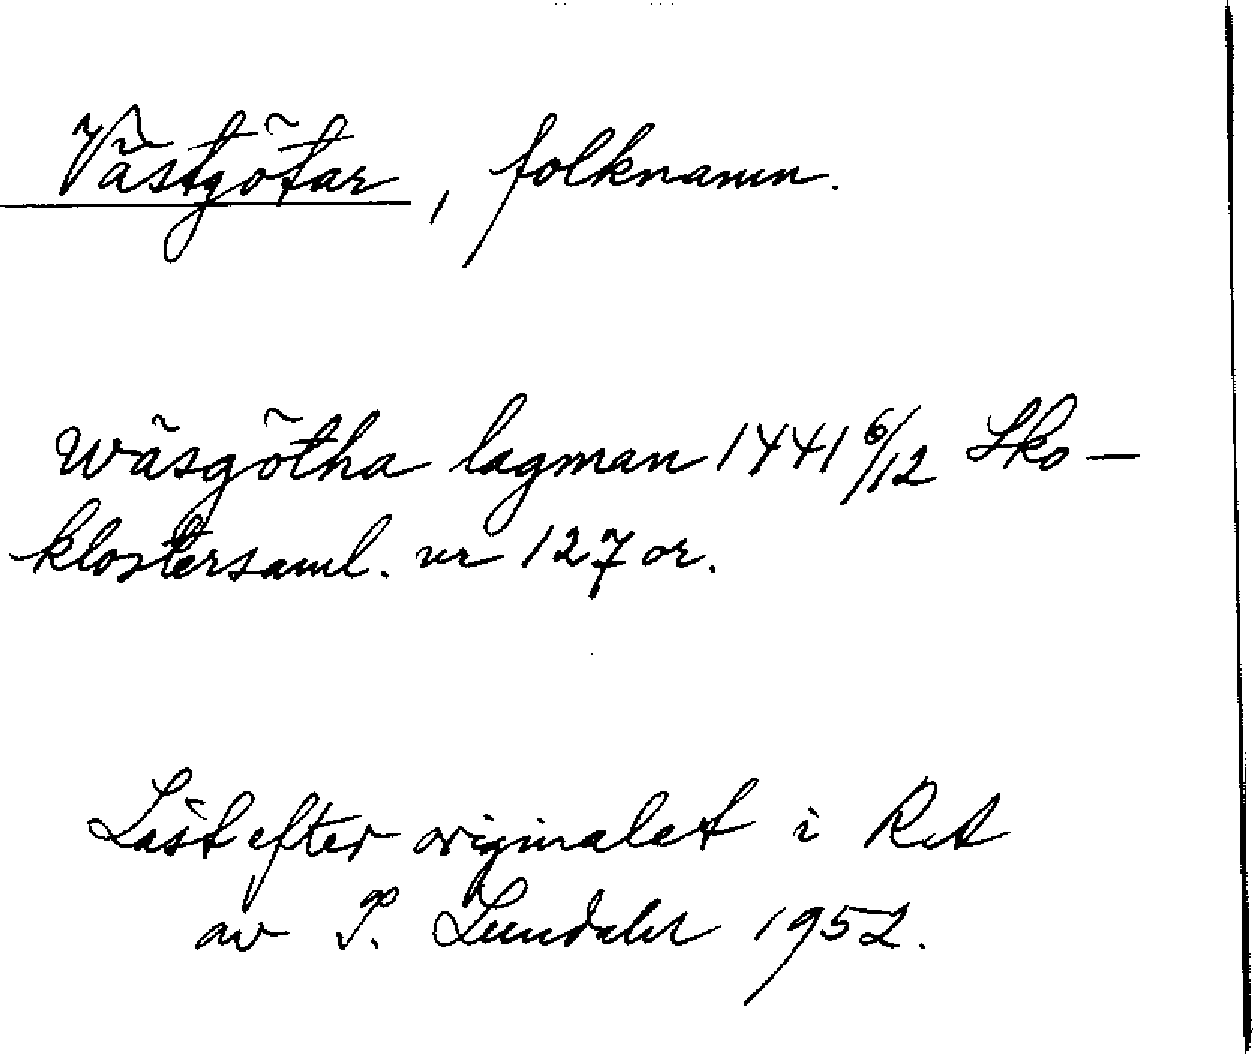 Västgötar, folknamn.
Wäsgötha lagman 1441 6/12 Sko-
klostersaml. nr 127 or.
Läst efter originalet i RA
av I. Lundahl 1952.